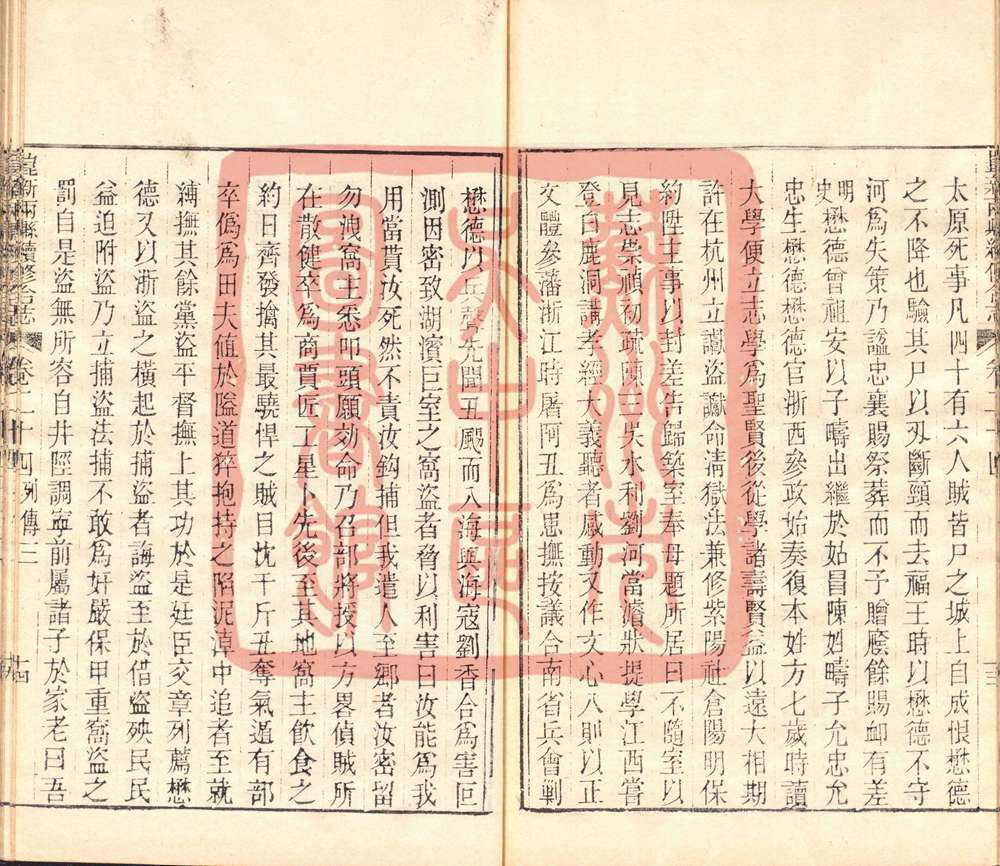 太原死事凡四十有六人賊皆尸之城上自成恨懋德
之不降也驗其尸以刃斷頸而去福王時以懋德不守
河為失策乃諡忠襄賜祭葬而不予贈廕餘賜卹有差
明史
懋德曾祖安以子疇出繼於姑昌陳姓疇子允忠允
忠生懋德懋德官浙西參政始奏復本姓方七歲時讀
大學便立志學為聖賢後從學諸壽賢益以遠大相期
許在杭州立讞盜讞命清獄法兼修紫陽社倉陽明保
約陞主事以封差告歸築室奉母題所居曰不隨室以
見志崇禎初疏陳三吳水利劉河當濬狀提學江西嘗
登白鹿洞講孝經大義聽者感動又作文心八則以正
文體參藩浙江時屠阿丑為患撫按議合南省兵會剿
懋德以兵聲先聞丑颺而入海與海寇劉香合為害叵
測因密致湖濱巨室之窩盜者脅以利害曰汝能為我
用當貰汝死然不責汝鈎捕但我遣人至鄉者汝密留
勿洩窩主悉叩頭願効命乃召部將授以方畧偵賊所
在散健卒為商賈匠工星卜先後至其地窩主飲食之
約日齊發擒其最驍悍之賊目沈千斤丑奪氣遁有部
卒僞為田夫值於隘道猝抱持之陷泥淖中追者至就
縛撫其餘黨盜平督撫上其功於是廷臣交章列薦懋
德又以浙盜之橫起於捕盜者誨盜至於借盜殃民民
益迫附盜乃立捕盜法捕不敢為奸嚴保甲重窩盜之
罰自是盜無所容自井陘調寧前屬諸子於家老曰吾
崑新兩縣續修合志 卷二十四 列傳三
十四
蘇州市
吳中區
圖書館